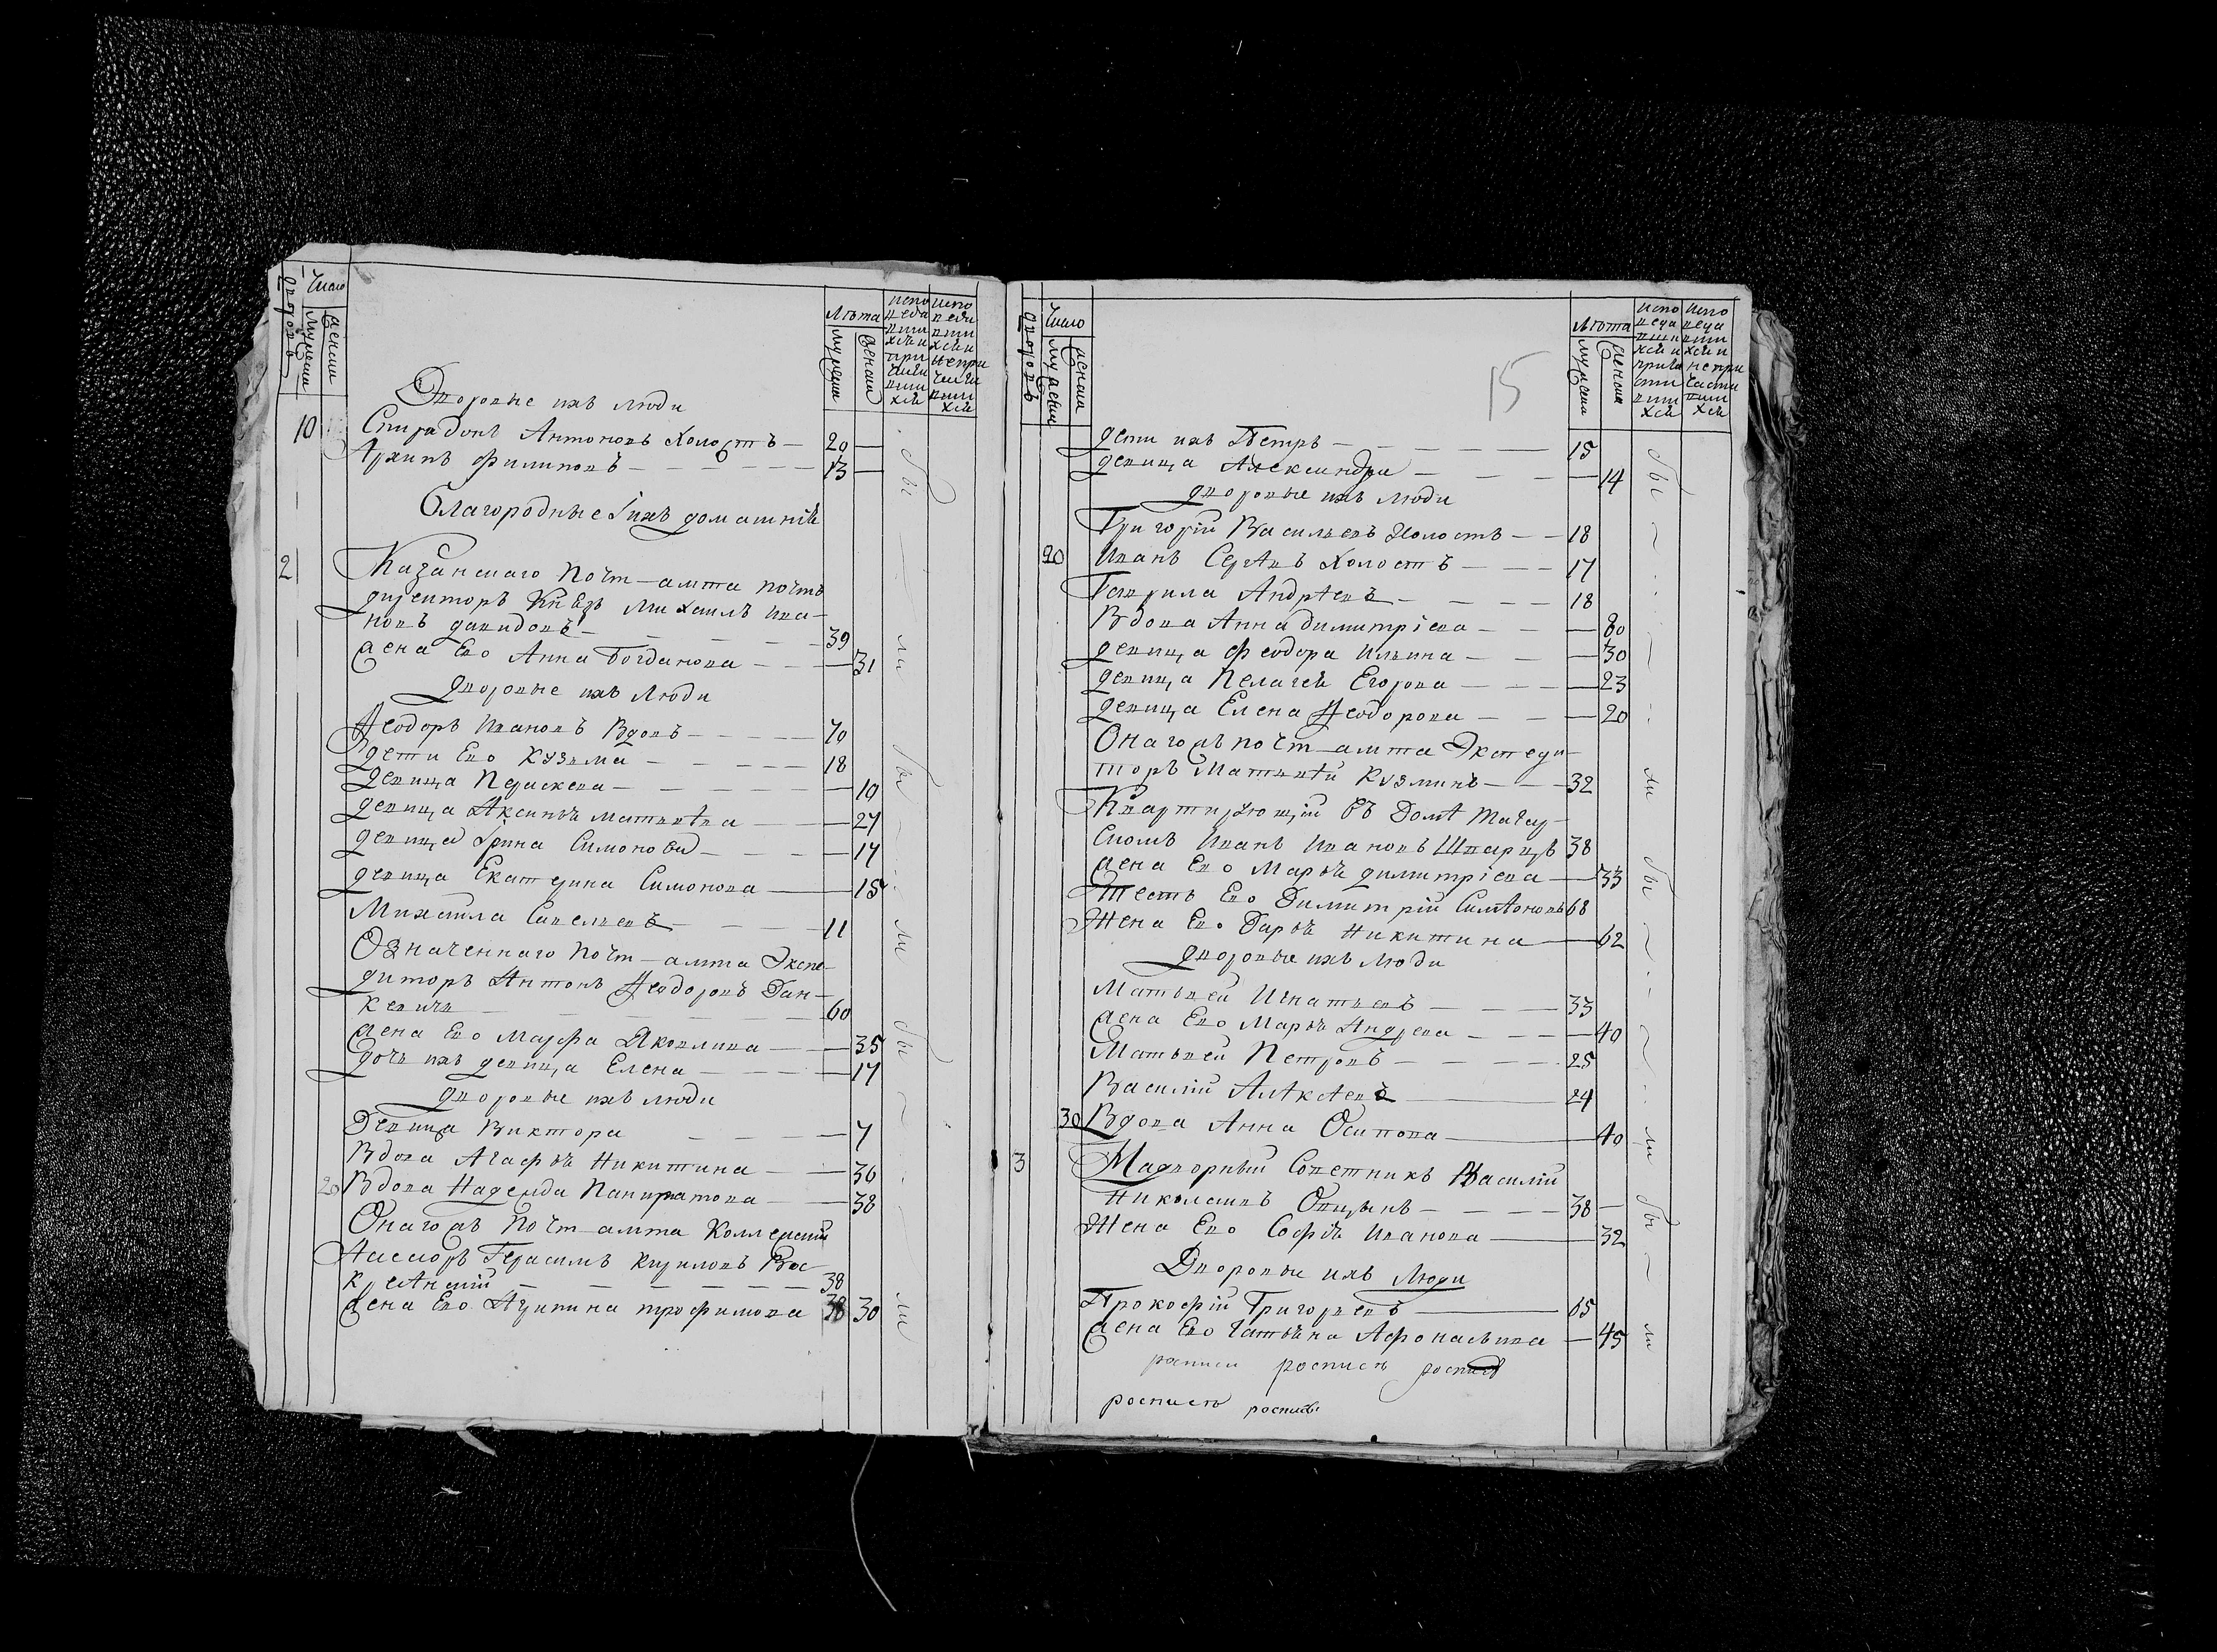 Число
дворовъ
мужеска
женска
Лѣта
мужеска
женска
испо
веда
вши
хся и
при
чаща
вши
хся
испо
веда
вши
хся и
непри
чаща
вши
хся
Дворовые ихъ люди
10 Спиридонъ Антоновъ холостъ — 20 —
Архипъ Филиповъ — 13 —
Благородные и ихъ домашнія
2 Казанскаго Почт-амта почтъ
директоръ Князь Михаилъ Ива-
новъ давидовъ — 39
жена Ево Анна Богданова — 31
дворовые ихъ люди
Ѳеодоръ Ивановъ Вдовъ — 70
дети Ево Кузьма — 18
девица Параскева — 10
девица Аксинья Матвѣева — 27
девица Ірина Симонова — 17
девица Екатерина Симонова — 15
Михаила Савельевъ — 11
Означеннаго Почт-амта Экспе-
диторъ Антонъ Ѳеодоровъ Ган-
кевичъ — 60
жена Ево Марфа Яковлива — 35
дочь ихъ девица Елена — 17
дворовые ихъ люди
Девица Виктора — 7
Вдова Агафья Никитина — 36
20 Вдова Надежда Панкратова — 38
Онагожъ Почт-амта Коллежскій
Ассесоръ Герасимъ Кириловъ Вос
кресѣнскій — 38
жена Ево Агрипина трофимова 38 30
бы
ли
бы
ли
бы
ли
15
Число
дворовъ
мужеска
женска
Лѣта
мужеска
женска
испо
веда
вши
хся и
прича
сти
вши
хся
испо
веда
вши
хся и
непри
части
вши
хся
дети ихъ Петръ — 15
девица Александра — 14
дворовые ихъ люди
Григорій Васильевъ Холостъ — 18
20 Иванъ Сергѣвъ Холостъ — 17
Гаврила Андрѣевъ — 18
Вдова Анна димитріева — 80
девица Феодора Ильина — 30
девица Пелагея Егорова — 23
девица Елена Ѳеодорова — 20
Онагожъ почт-амта Экспеди-
торъ Матвѣй Кузминъ — 32
Квартирующій въ Домѣ
Иванъ Ивановъ Шварцъ 38
жена Ево Марья димитріева — 33
Тесть Ево Димитрій Симѣоновъ 68
Жена Ево Дарья Никитина — 62
дворовые ихъ люди
Матьвей Игнатьевъ — 33
жена Ево Марья Андрева — 40
Матьвей Петровъ — 25
Василій Алѣксѣевъ — 24
30 Вдова Анна Осипова — 40
3 Надворный Советникъ Василій
Николаивъ — 38 —
Жена Ево Софья Иванова — 32
Дворовые ихъ Люди
Прокофій Григорьевъ — 65
жена Ево Татьяна Афонасьива — 45
роспись роспись роспись
роспись роспись
бы
ли
бы
ли
бы
ли